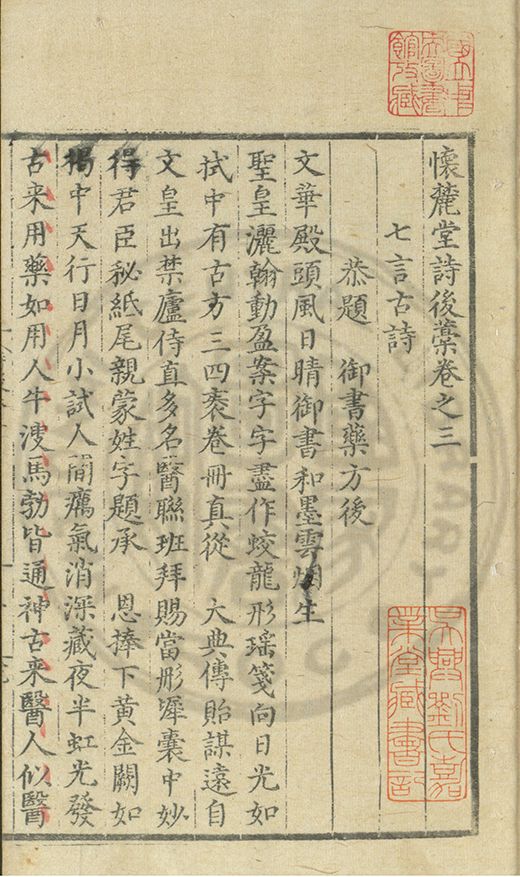 懷麓堂詩後藁卷之三
七言古詩
恭題 御書藥方後
文華殿頭風日晴御書和墨雲烟生
聖皇灑翰動盈案字字盡作蛟龍形瑶箋向日光如
拭中有古方三四袠卷冊真從 大典傳貽謀遠自
文皇出禁廬侍直多名醫聯班拜賜當彤墀囊中妙
得君臣秘紙尾親蒙姓字題承 恩捧下黃金闕如
揭中天行日月小試人間癘氣消深藏夜半虹光發
古来用藥如用人牛溲馬勃皆通神古来醫人似醫
吳興劉氏嘉業堂藏書記